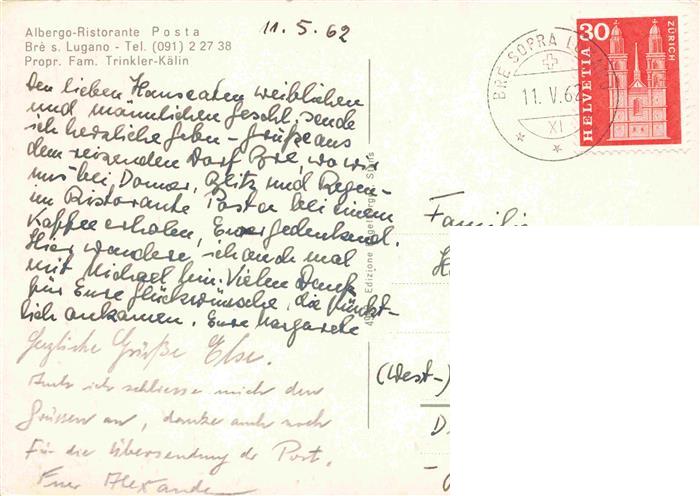 Albergo-Ristorante Posta
Brè s. Lugano - Tel. (091) 2 27 38
Propr. Fam. Trinkler-Kälin
11. 5. 62
Den lieben Hanseaten weiblichen
und männlichen Geschl. sende
ich herzliche Grüße aus
dem reizenden Dorf Bre, wo wir
uns bei Donner, Blitz und Regen
im Ristorante Posta bei einem
Kaffee erholen, Euer gedenkend.
Hier wandere ich auch mal
mit Michael hin. Vielen Dank
für Eure Glückwünsche, die pünkt-
lich ankamen. Eure Margarete
Herzliche Grüße Else.
Auch ich schliesse mich den
Grüssen an, danke auch noch
für die Übersendung der Post.
Euer Alexander
Edizione
BRE SOPRA
11. V. 62
XI
30
HELVETIA
ZÜRICH
Familie
H
(West-)
D